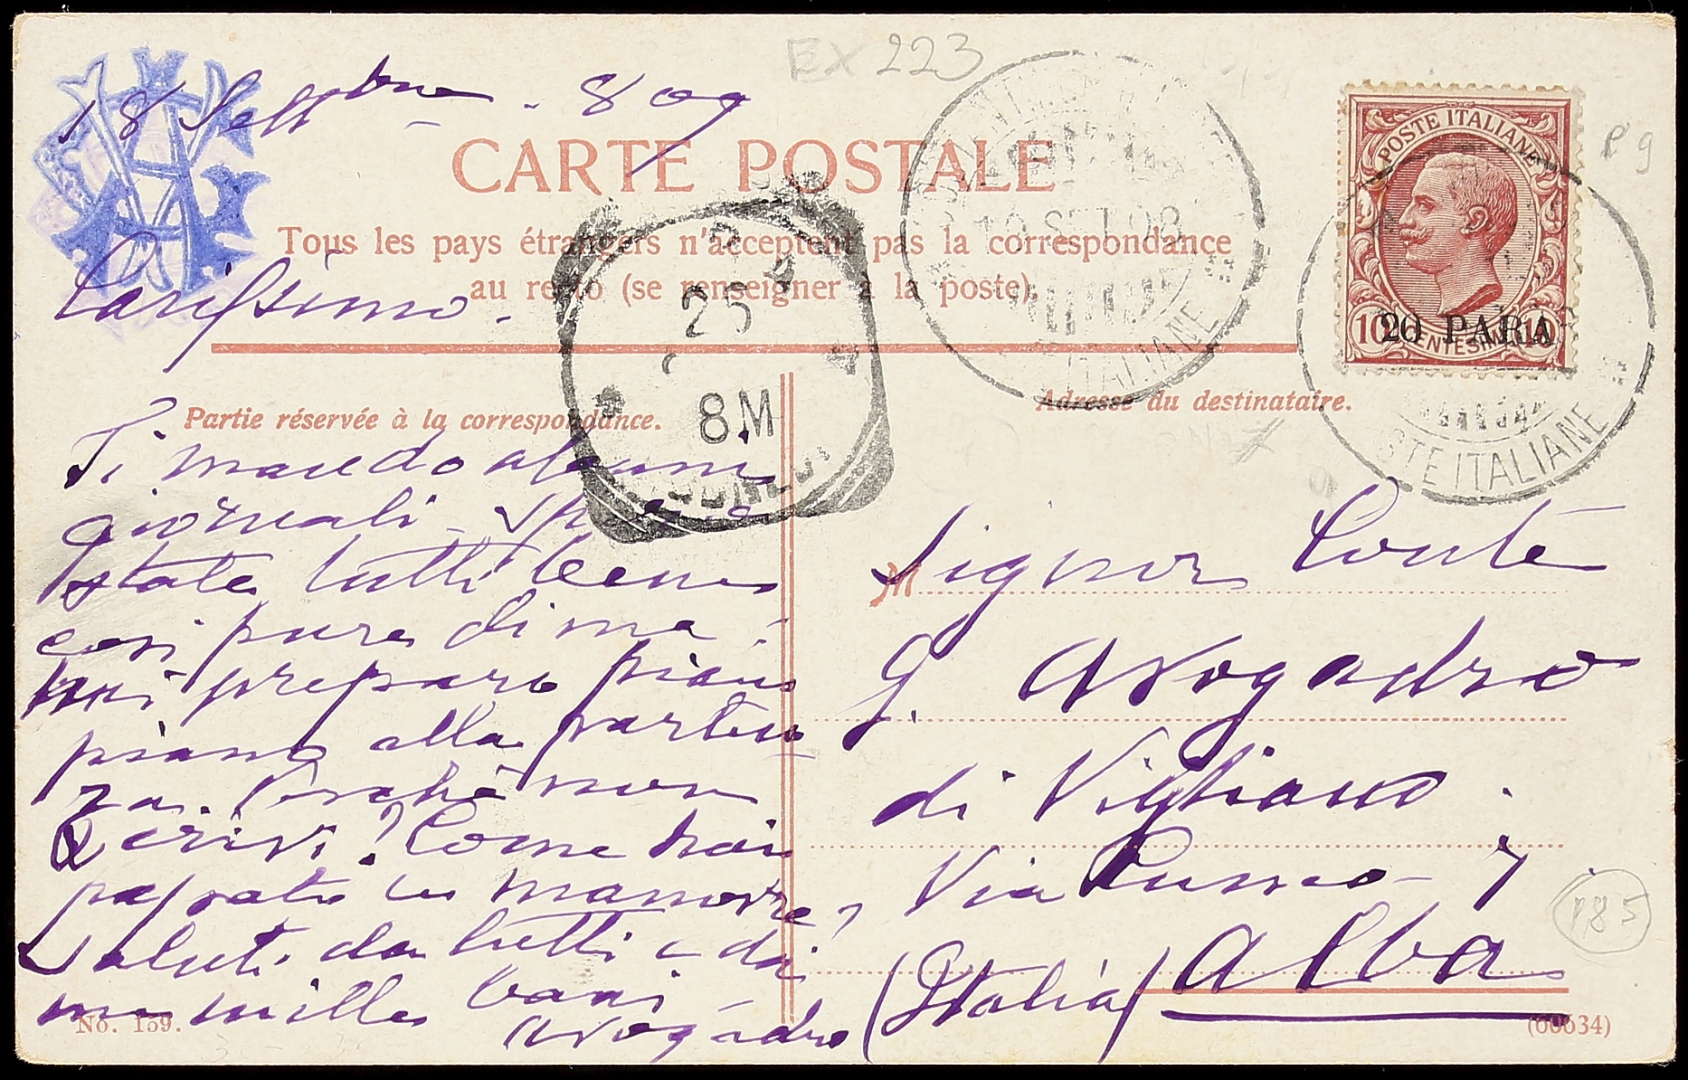 EX 223
18 Settbre. 809
CARTE POSTALE
Tous les pays étrangers n'acceptent pas la correspondance
au recto (se renseigner à la poste).
Carissimo.
Partie réservée à la correspondance.
Ti mando alcuni
giornali. Spero
state tutti bene
cosi pure di me.
mi preparo piano
piano alla parten
za. Perchè non
scrivi? Come hai
passate le manovre?
Saluti da tutti e da
me mille baci
Avogadro
No. 159.
25
8M
10 SET 09
POSTE ITALIANE
POSTE ITALIANE
10 CENTESIMI 10
20 PARA
POSTE ITALIANE
Adresse du destinataire.
M
Signor Conte
G. Avogadro
di Vigliano.
Via Cuneo - 7.
(Italia) Alba
185
(60634)